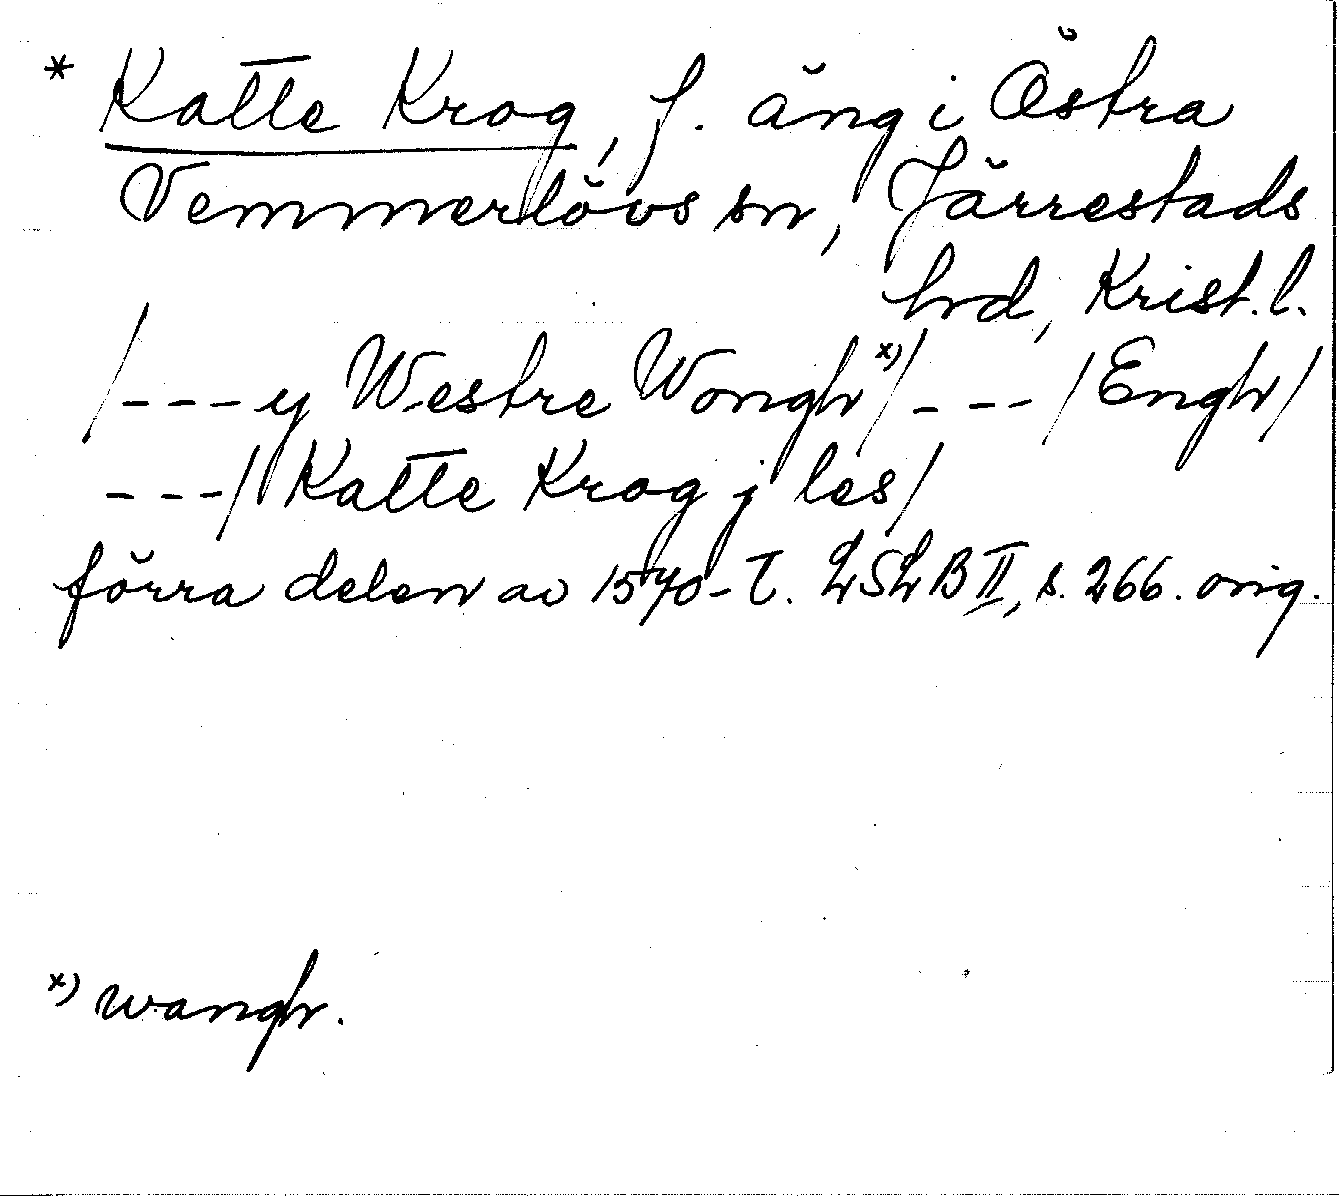 * Katte Krog, f. äng i Östra
Vemmerlövs sn, Järrestads
hrd, Krist. l.
/---y Westre Wongh x)/---/Engh/
---/Katte Krog j les/
förra delen av 1570-t. LSLB II, s. 266. orig.
x) wangh.